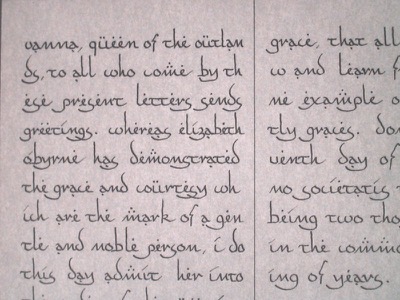 vanna, queen of the outlan
ds, to all who come by th
ese present letters sends
greetings. whereas elizabeth
obyrne has demonstrated
the grace and courtesy wh
ich are the mark of a gen
tle and noble person, i do
this day admit her into
grace, that all
w and learn f
ne example o
tly graces. don
venth day of
no societatis
being two tho
in the commo
ing of years.